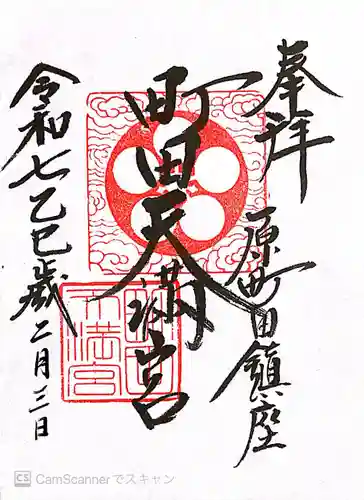 奉拝
原町田鎮座
町田天満宮
令和七乙巳歳二月三日
町田天満宮
CS CamScannerでスキャン